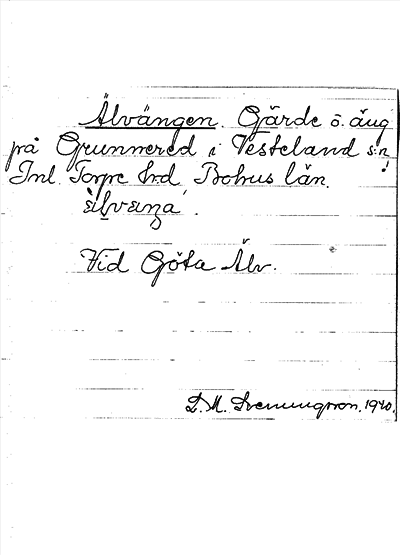 Älvängen. Gärde o. äng
på Grunnered i Västerland s:n
Inl. Torpe hrd. Bohus län.
Vid Göta Älv.
D. M. Svenungsson. 1940.